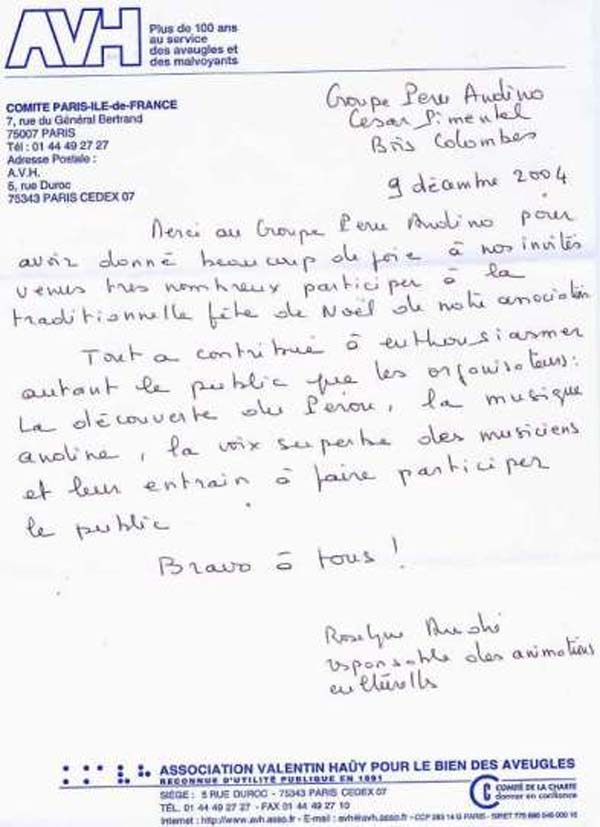 AVH
Plus de 100 ans
au service
des aveugles et
des malvoyants
COMITE PARIS-ILE-de-FRANCE
7, rue du Général Bertrand
75007 PARIS
Tél : 01 44 49 27 27
Adresse Postale :
A.V.H.
5, rue Duroc
75343 PARIS CEDEX 07
Groupe Peru Andino
Cesar Pimentel
Bois Colombes
9 décembre 2004
Merci au Groupe Peru Andino pour
avoir donné beaucoup de joie à nos invités
venus très nombreux participer à la
traditionnelle fête de Noël de notre association
Tout a contribué à enthousiasmer
autant le public que les organisateurs :
La découverte du Pérou, la musique
andine, la voix superbe des musiciens
et leur entrain à faire participer
le public
Bravo à tous !
Roselyne
responsable des animations
culturelles
ASSOCIATION VALENTIN HAÜY POUR LE BIEN DES AVEUGLES
RECONNUE D'UTILITÉ PUBLIQUE EN 1891
SIÈGE : 5 RUE DUROC - 75343 PARIS CEDEX 07
TÉL. 01 44 49 27 27 - FAX 01 44 49 27 10
Internet : http://www.avh.asso.fr - E-mail : avh@avh.asso.fr - CCP 283 14 G PARIS - SIRET
COMITÉ DE LA CHARTE
donner en confiance